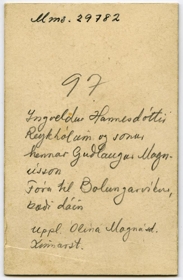 Mms. 29782
97
Ingveldur Hannesdóttir
Reykhólum og sonur
hennar Guðlaugur Magn-
ússon
Fóru til Bolungarvíkur,
bæði dáin
uppl. Ólína Magnúsd.